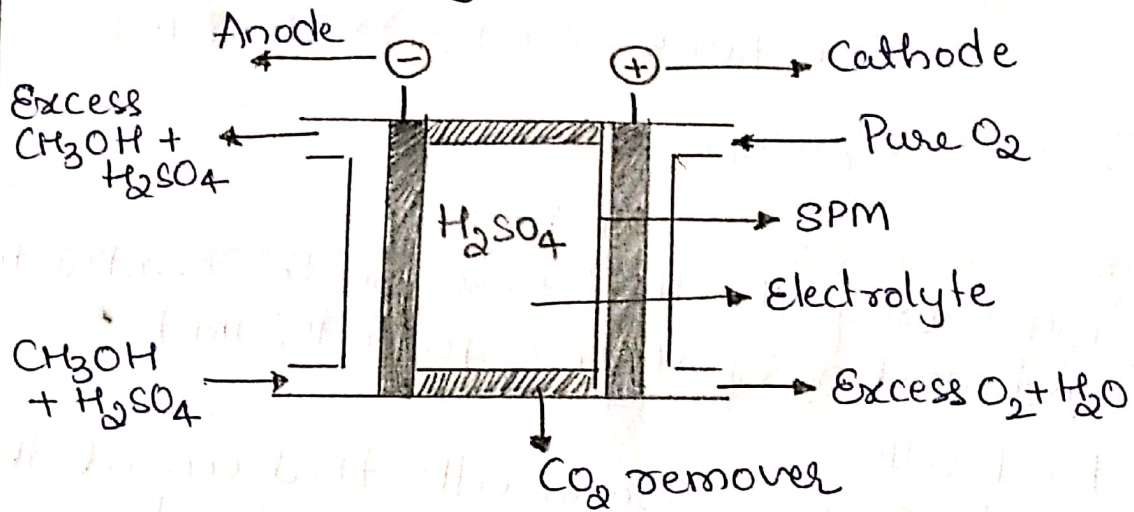 Anode
−
+
Cathode
Excess
CH3OH +
H2SO4
Pure O2
H2SO4
SPM
Electrolyte
CH3OH
+ H2SO4
Excess O2 + H2O
CO2 remover